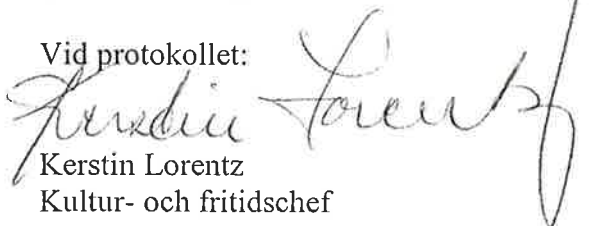 Vid protokollet:
Kerstin Lorentz
Kerstin Lorentz
Kultur- och fritidschef